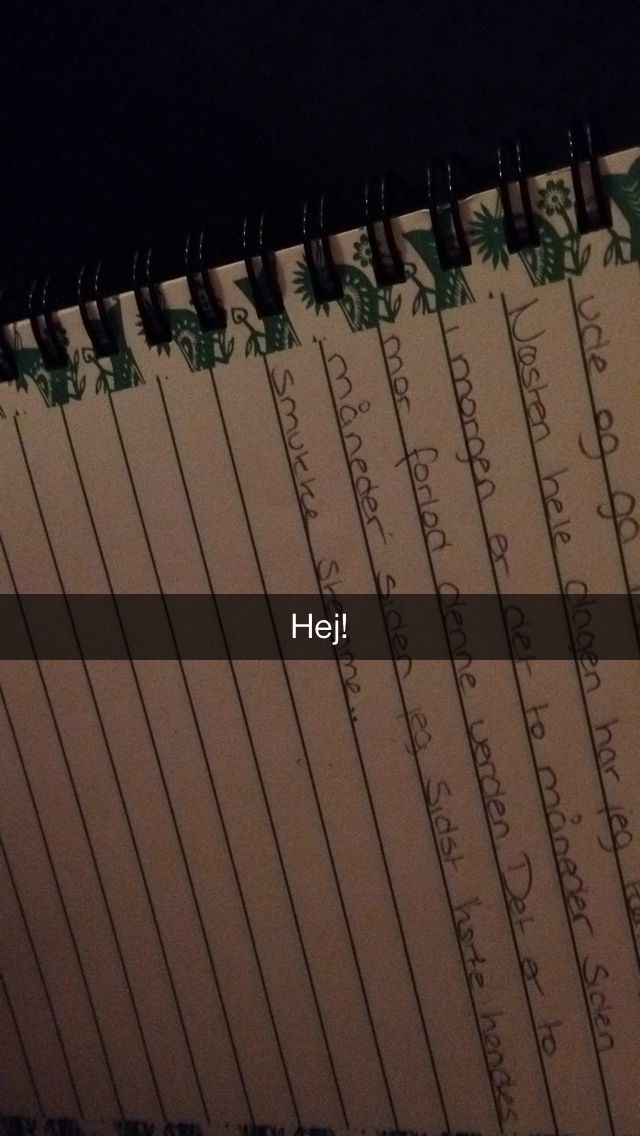 ude og gå
Næsten hele dagen har jeg
i morgen er det to månener siden
mor forlod denne verden. Det er to
måneder siden jeg sidst hørte hendes
smukke stemme..
Hej!